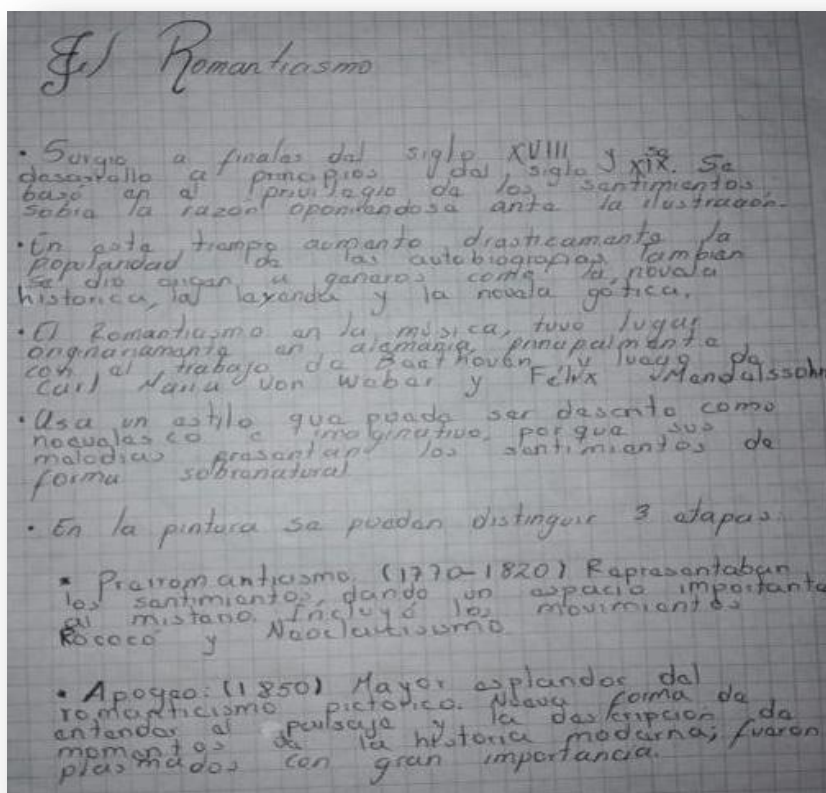 El Romanticismo
• Surgio a finales del siglo XVIII y se
desarrollo a principios del siglo XIX. Se
basó en el privilegio de los sentimientos
sobre la razón oponiendose ante la ilustración.
• En este tiempo aumento drasticamente la
popularidad de las autobiografias, tambien
se dio origen a generos como la novela
historica, la leyenda y la novela gótica.
• El Romanticismo en la música, tuvo lugar
originariamente en alemania, principalmente
con el trabajo de Beethoven y luego de
Carl Maria Von Weber y Félix Mendelssohn
• Usa un estilo que puede ser descrito como
e imaginativo, porque sus
melodias presentan los sentimientos de
forma sobrenatural
• En la pintura se pueden distinguir 3 etapas:
• Preiromanticismo. (1770-1820) Representaban
los sentimientos, dando un espacio importante
al misterio. Incluyó los movimientos
Rococó y
• Apogeo: (1850) Mayor esplendor del
romanticismo pictorico. Nueva forma de
entender el paisaje y la descripcion de
momentos de la historia moderna; fueron
plasmados con gran importancia.